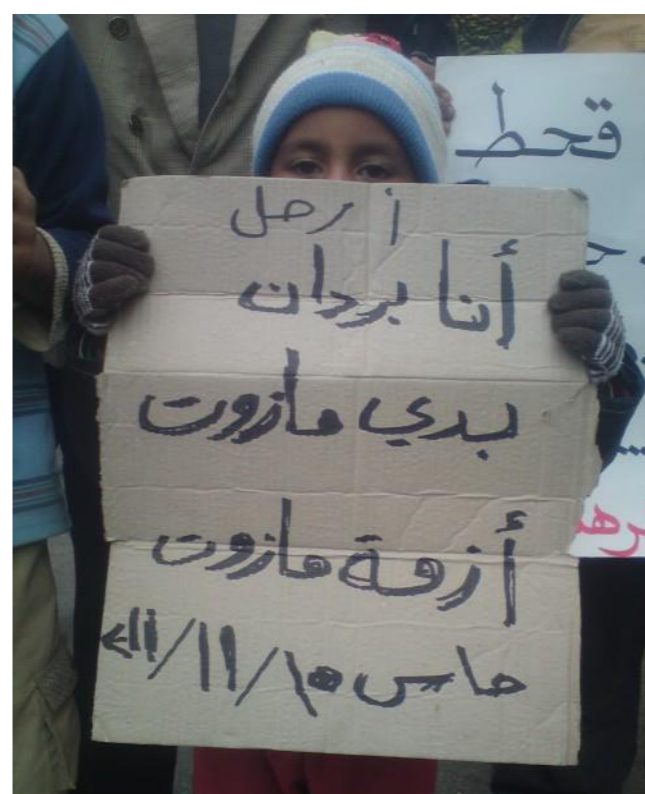 أرحل
أنا بردان
بدي مازوت
أزمة مازوت
حاس
قحط